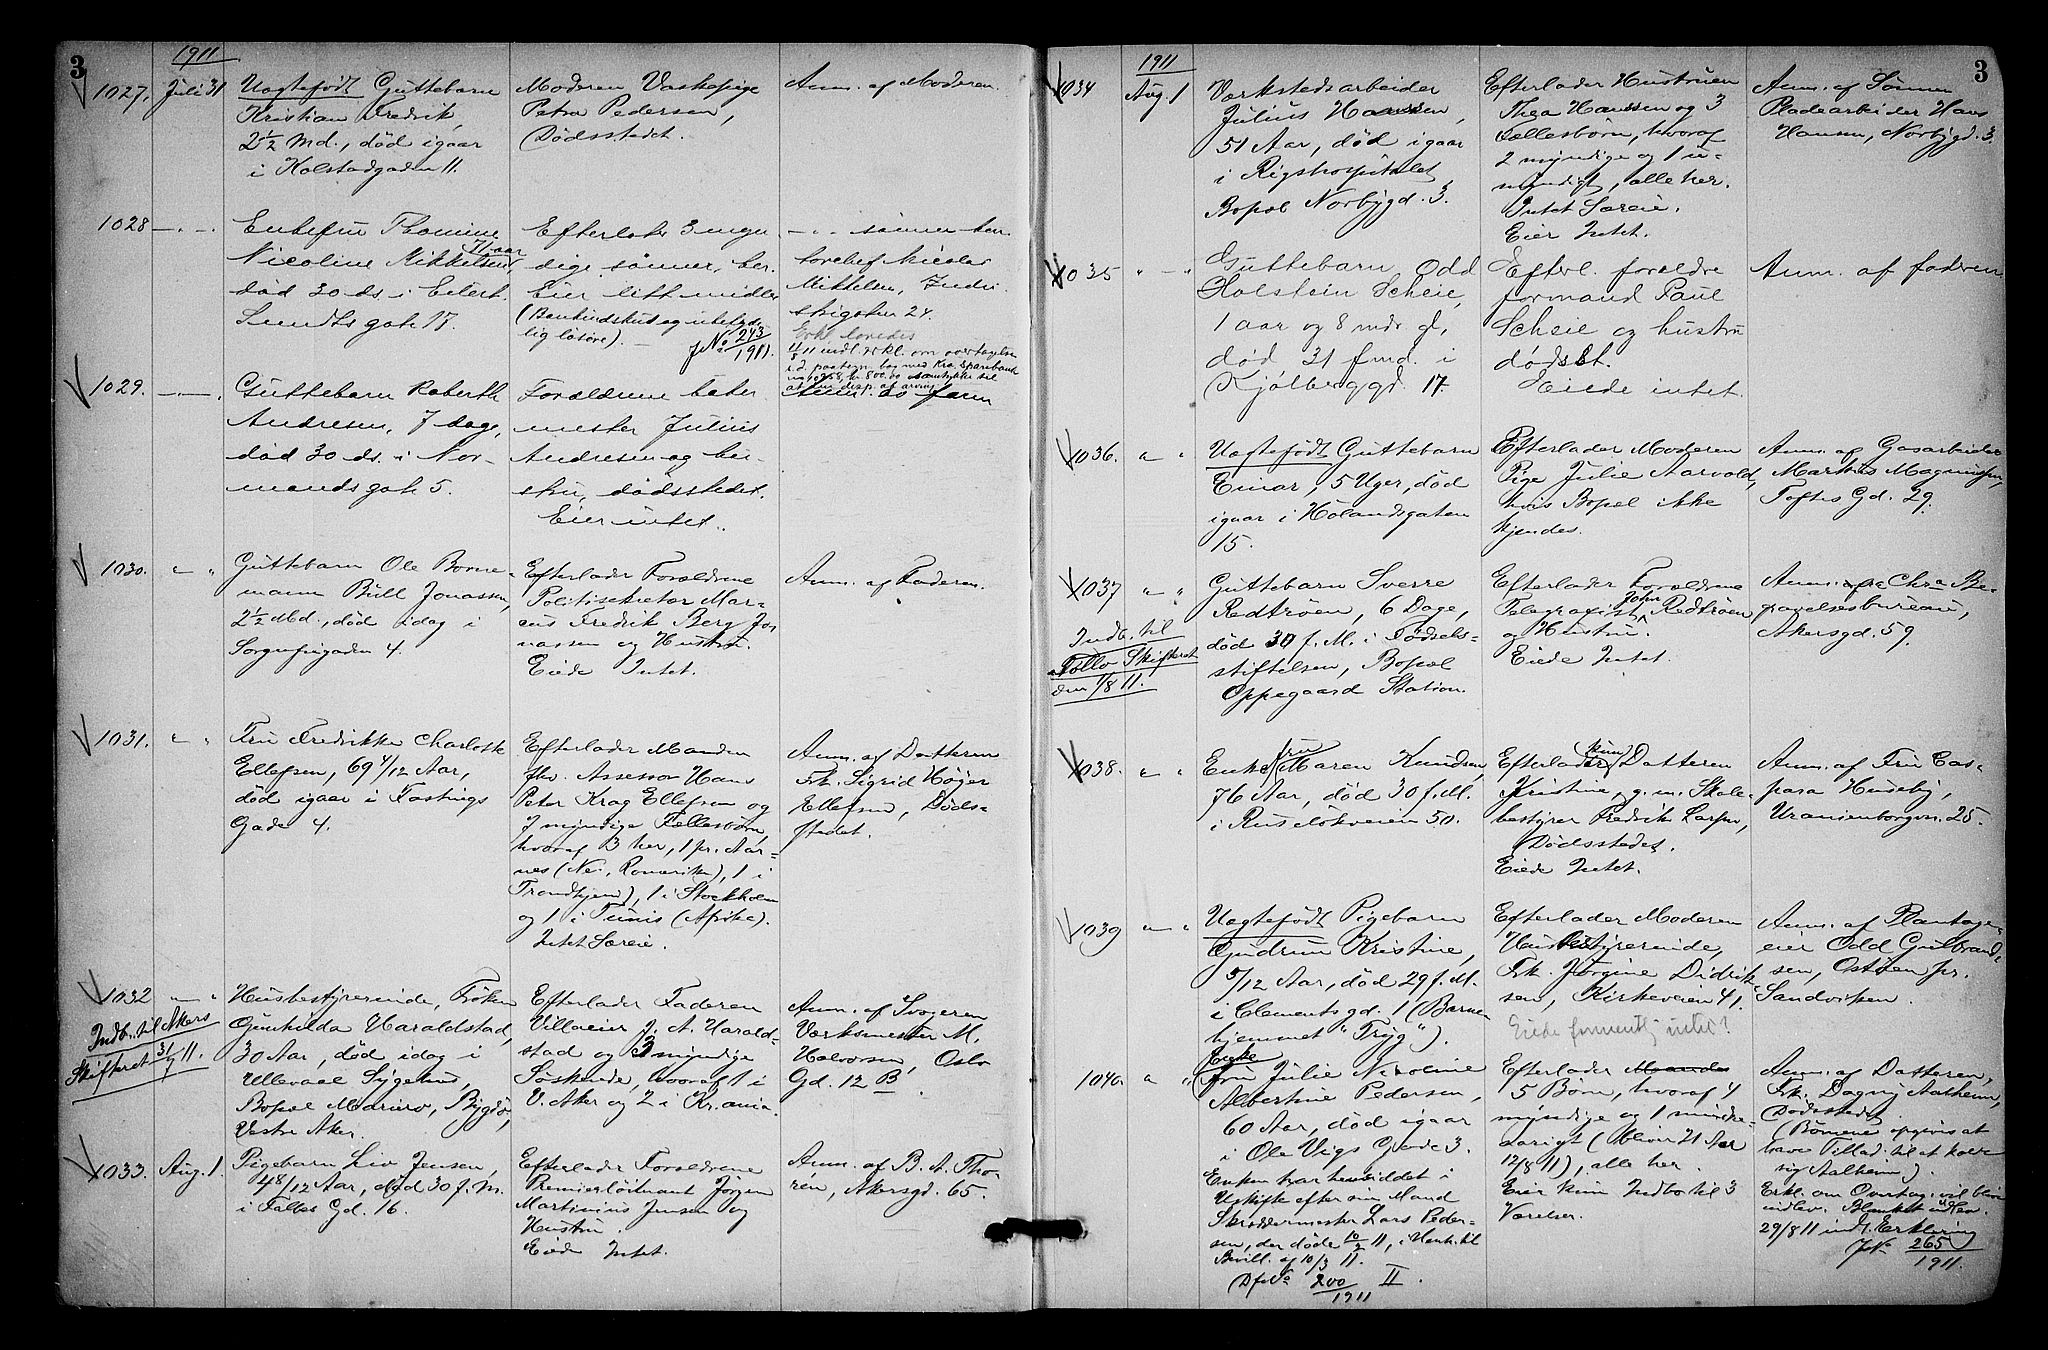 3
1911
1027. Juli 31
Uægtefødt Guttebarn
Kristian Fredrik,
2 1/2 Md., død igaar
i Holstadgaden 11.
Moderen Vaskepige
Petra Pedersen,
Dødsstedet.
Anm. af Moderen.
1028 —"—
Enkefru Thomine
Nicoline Mikkelsen, 71 aar
død 30 ds. i Eilert
Sundts gate 17.
Efterlater 3 myn-
dige sønner, her.
Eier litt midler
(Bankindskud og ubetyde-
lig løsøre). —
JNo 243/1911.
—"— sønnen kon-
torchef Nicolai
Mikkelsen, Indu-
strigaten 24.
Erkl. lovedes
1029. —"—
Guttebarn Roberth
Andresen, 7 dage,
død 30 ds. i Nor-
mandsgate 5.
Forældrene
mester Julius
Andresen og hu-
stru, dødsstedet.
Eier intet.
Anm. av faren
1030. " "
Guttebarn Ole Borne-
mann Bull Jonassen,
2 1/2 Md., død idag i
Sorgenfrigaden 4.
Efterlader Forældrene
Politisekretær Mar-
cus Fredrik Berg Jo-
nassen og Hustru.
Eiede Intet.
Anm. af Faderen.
1031. " "
Fru Fredrikke Charlotte
Ellefsen, 69 4/12 Aar,
død igaar i Fastings
Gade 4.
Efterlader Manden
fhv. Assessor Hans
Peter Krag Ellefsen og
7 myndige Fællesbørn,
hvoraf 3 her, 1 pr. Aar-
nes (Nes, Romerike), 1 i
Trondhjem, 1 i Stockholm
og 1 i Tunis (Afrika).
Intet Særeie.
Anm. af Datteren
Frk. Sigrid Høyer
Ellefsen, Døds-
stedet.
1032 " "
Indb. til Akers
Skifteret 31/7 11.
Husbestyrerinde, Frøken
Gunhilda Haraldstad,
30 Aar, død idag i
Ullevaal Sygehus,
Bopæl Mariero, Bygdø,
Vestre Aker.
Efterlader Faderen
Villaeier J. A. Harald-
stad og 3 myndige
Søskende, hvoraf 1 i
V. Aker og 2 i Kr.ania.
Anm. af Svogeren
Værksmester M.
Halvorsen, Oslo
Gd. 12 B.
1033. Aug. 1.
Pigebarn Liv Jensen,
4 8/12 Aar, død 30 f. M.
i Falbes Gd. 16.
Efterlader Forældrene
Premierløitnant Jørgen
Martinius Jensen og
Hustru.
Eiede Intet.
Anm. af B. A. Tho-
rén, Akersgd. 65.
3
1911
1034 Aug. 1
Værkstedsarbeider
Julius Hanssen,
51 Aar, død igaar
i Rigshospitalet
Bopæl Norbygd. 3.
Efterlader Hustruen
Thea Hanssen og 3
Fællesbørn, hvoraf
2 myndige og 1 u-
myndigt, alle her.
Intet Særeie.
Eier Intet.
Anm. af Sønnen
Pladearbeider Hans
Hansen, Norbygd. 3.
1035 " "
Guttebarn Odd
Holstein Scheie,
1 aar og 8 mdr gl,
død 31 f md. i
Kjølberggd. 17.
Efterl. forældre
formand Paul
Scheie og hustru
dødsst.
Eiede intet.
Anm. af faderen
1036. " "
Uægtefødt Guttebarn
Einar, 5 Uger, død
igaar i Hølandsgaten
15.
Efterlader Moderen
Pige Julie Aarvold,
hvis Bopæl ikke
kjendes.
Anm. af Gasarbeider
Markus Magnussen,
Toftes Gd. 29.
1037 " "
Indb. til
Follo Skifteret
den 1/8 11.
Guttebarn Sverre
Redtrøen, 6 Dage,
død 30 f. M. i Fødsels-
stiftelsen, Bopæl
Oppegaard Station.
Efterlader Forældrene
Telegrafist John Redtrøen
og Hustru.
Eiede Intet.
Anm. fra Chra Be-
gravelsesbureau,
Akersgd. 59.
1038. " "
Enkefru Maren Knudsen,
76 Aar, død 30 f. M.
i Ruseløkveien 50.
Efterlader kun Datteren
Kristine, g. m. Skole-
bestyrer Fredrik Larsen,
Dødsstedet.
Eiede Intet.
Anm. af Fru Cas-
para Huseby,
Uranienborgvn. 25.
1039 " "
Uægtefødt Pigebarn
Gudrun Kristine,
5/12 Aar, død 29 f. M.
i Clementsgd. 1 (Barne-
hjemmet "Tryg").
Efterlader Moderen
Husbestyrerinde,
Frk. Jørgine Didrik-
sen, Kirkeveien 41.
Eiede formentl. intet?
Anm. af Plantage-
eier Odd Gulbrand-
sen, Ostøen pr.
Sandviken.
1040. " "
Enke
Fru Julie Nicoline
Albertine Pedersen,
60 Aar, død igaar
i Ole Vigs Gade 3.
Enken har hensiddet i
Uskifte efter sin Mand
Skræddermester Lars Peder-
sen, der døde 10/2 11, i Henh. til
Bevill. af 10/3 11.
Df No 200/1911 II.
Efterlader Manden
5 Børn, hvoraf 4
myndige og 1 mindre-
aarigt (bliver 21 Aar
12/8 11), alle her.
Eier kun Indbo til 3
Værelser.
Anm. af Datteren,
Frk. Dagny Aalheim,
Dødsstedet.
(Børnene opgives at
have Tillad. til at kalde
sig Aalheim).
Erkl. om Overtag. vil blive
indlev. Blanket udlev.
29/8 11 indl. Erklæring
JNo 265/1911.